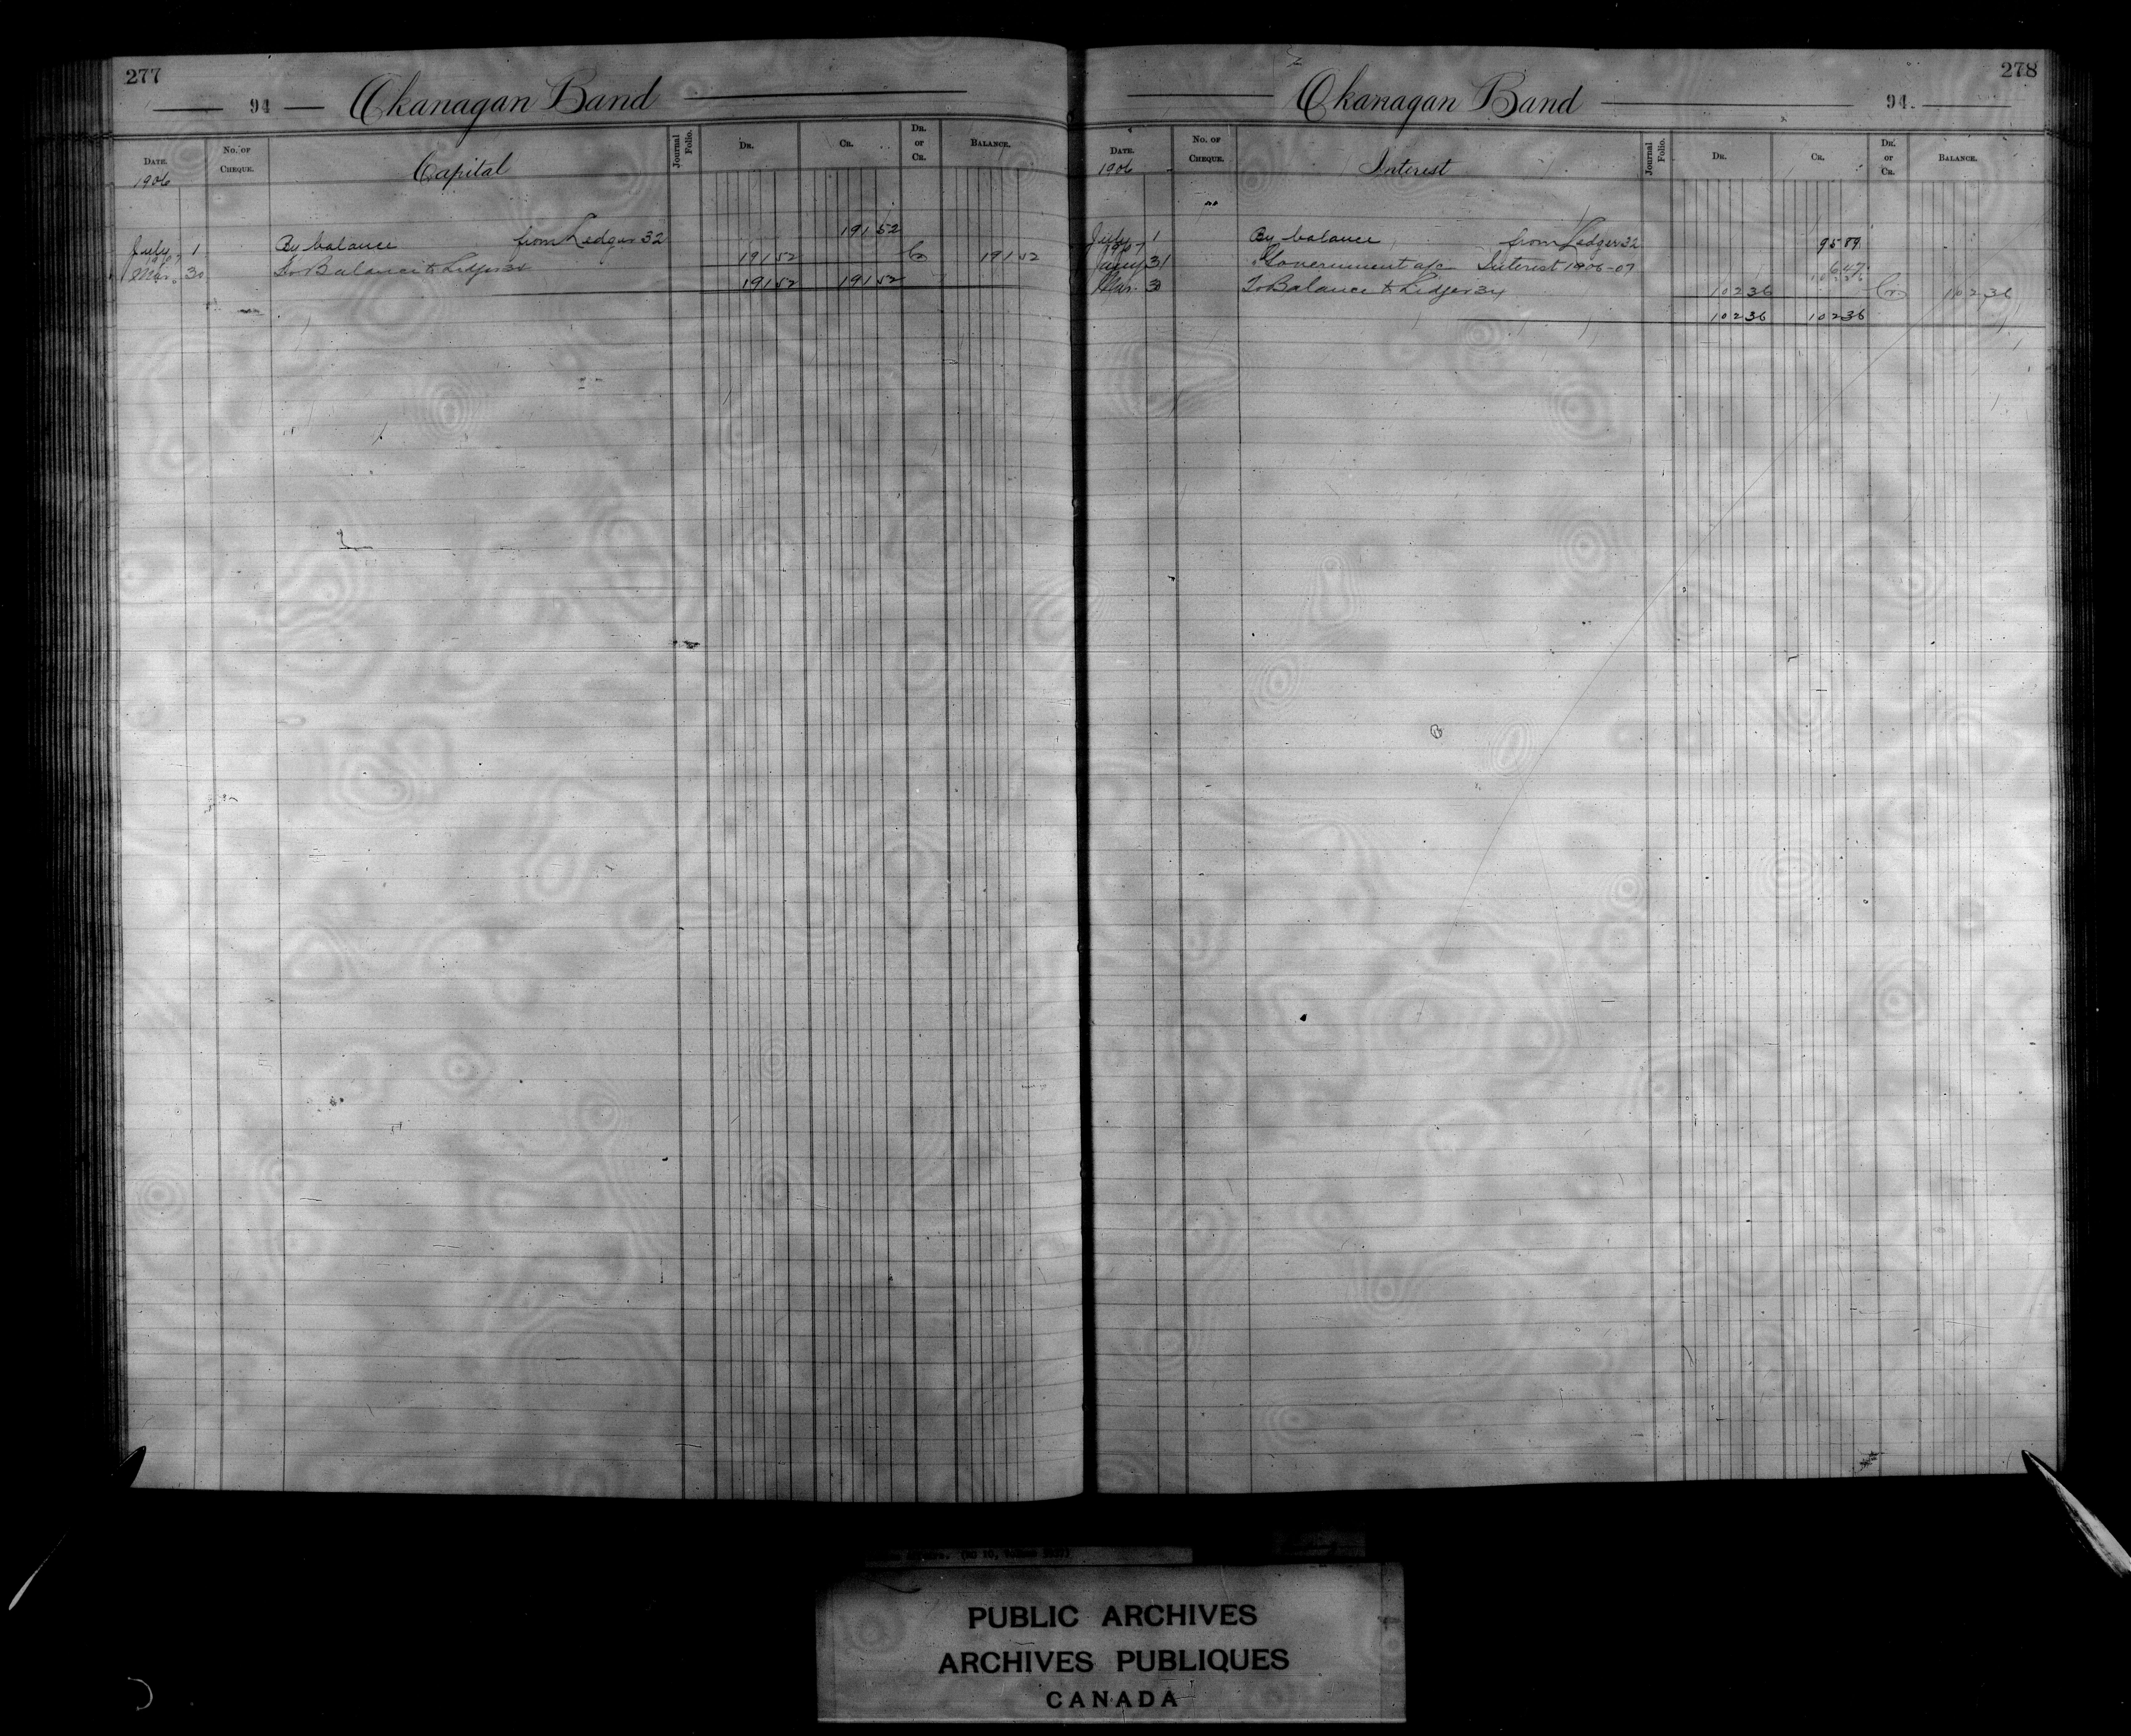 277
94 Okanagan Band
DATE. No. OF CHEQUE. Capital Journal Folio. DR. CR. DR. or CR. BALANCE.
1906
July 1 By balance from Ledger 32 191 52
1907
Mar. 30 To Balance to Ledger 34 191 52 Cr 191 52
191 52 191 52
278
Okanagan Band 94.
DATE. No. OF CHEQUE. Interest Journal Folio. DR. CR. DR. or CR. BALANCE.
1906
July 1 By balance from Ledger 32 95 89
1907
Jany 31 Government a/c Interest 1906-07 6 47
Mar. 30 To Balance to Ledger 34 102 36 Cr 102 36
102 36 102 36
PUBLIC ARCHIVES
ARCHIVES PUBLIQUES
CANADA